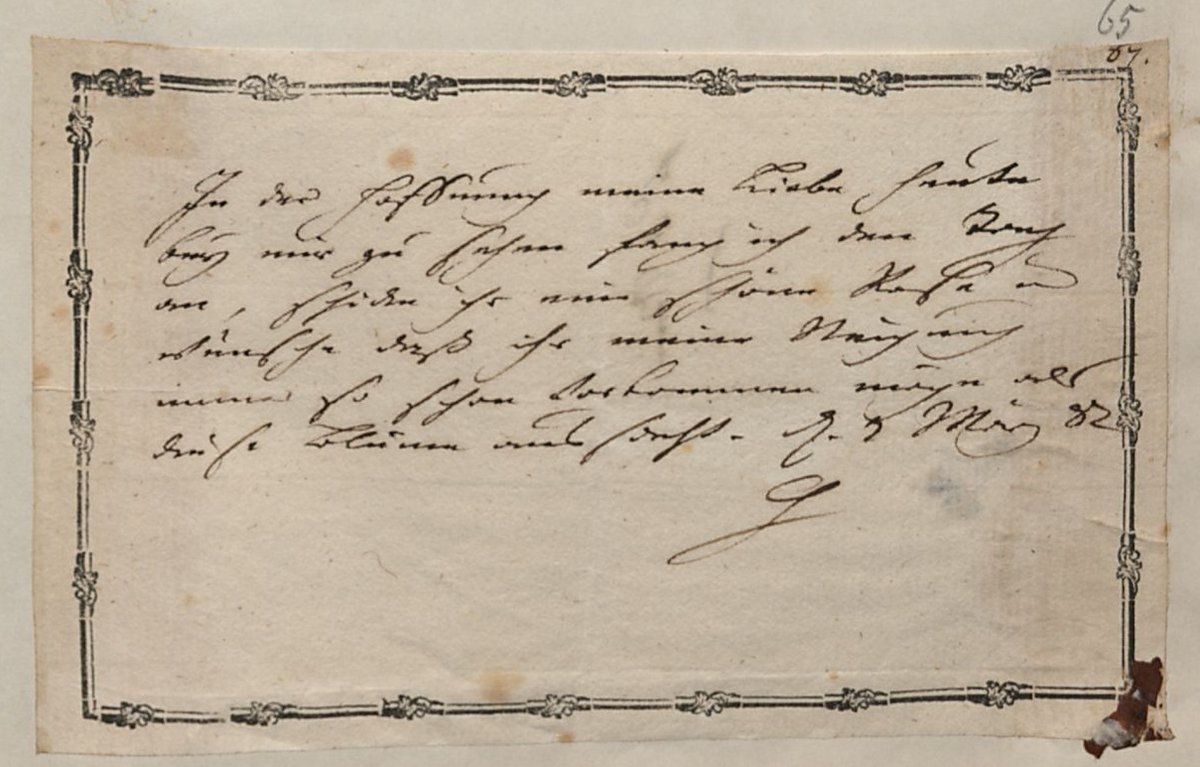 65
87.
In der Hoffnung meine Liebe heute
bey mir zu sehen fang ich den Tag
an, schicke ihr eine schöne Rose u
wünsche daß ihr meine Neigung
immer so schön vorkommen möge als
diese Blume aussieht. d. 8 März 82
G